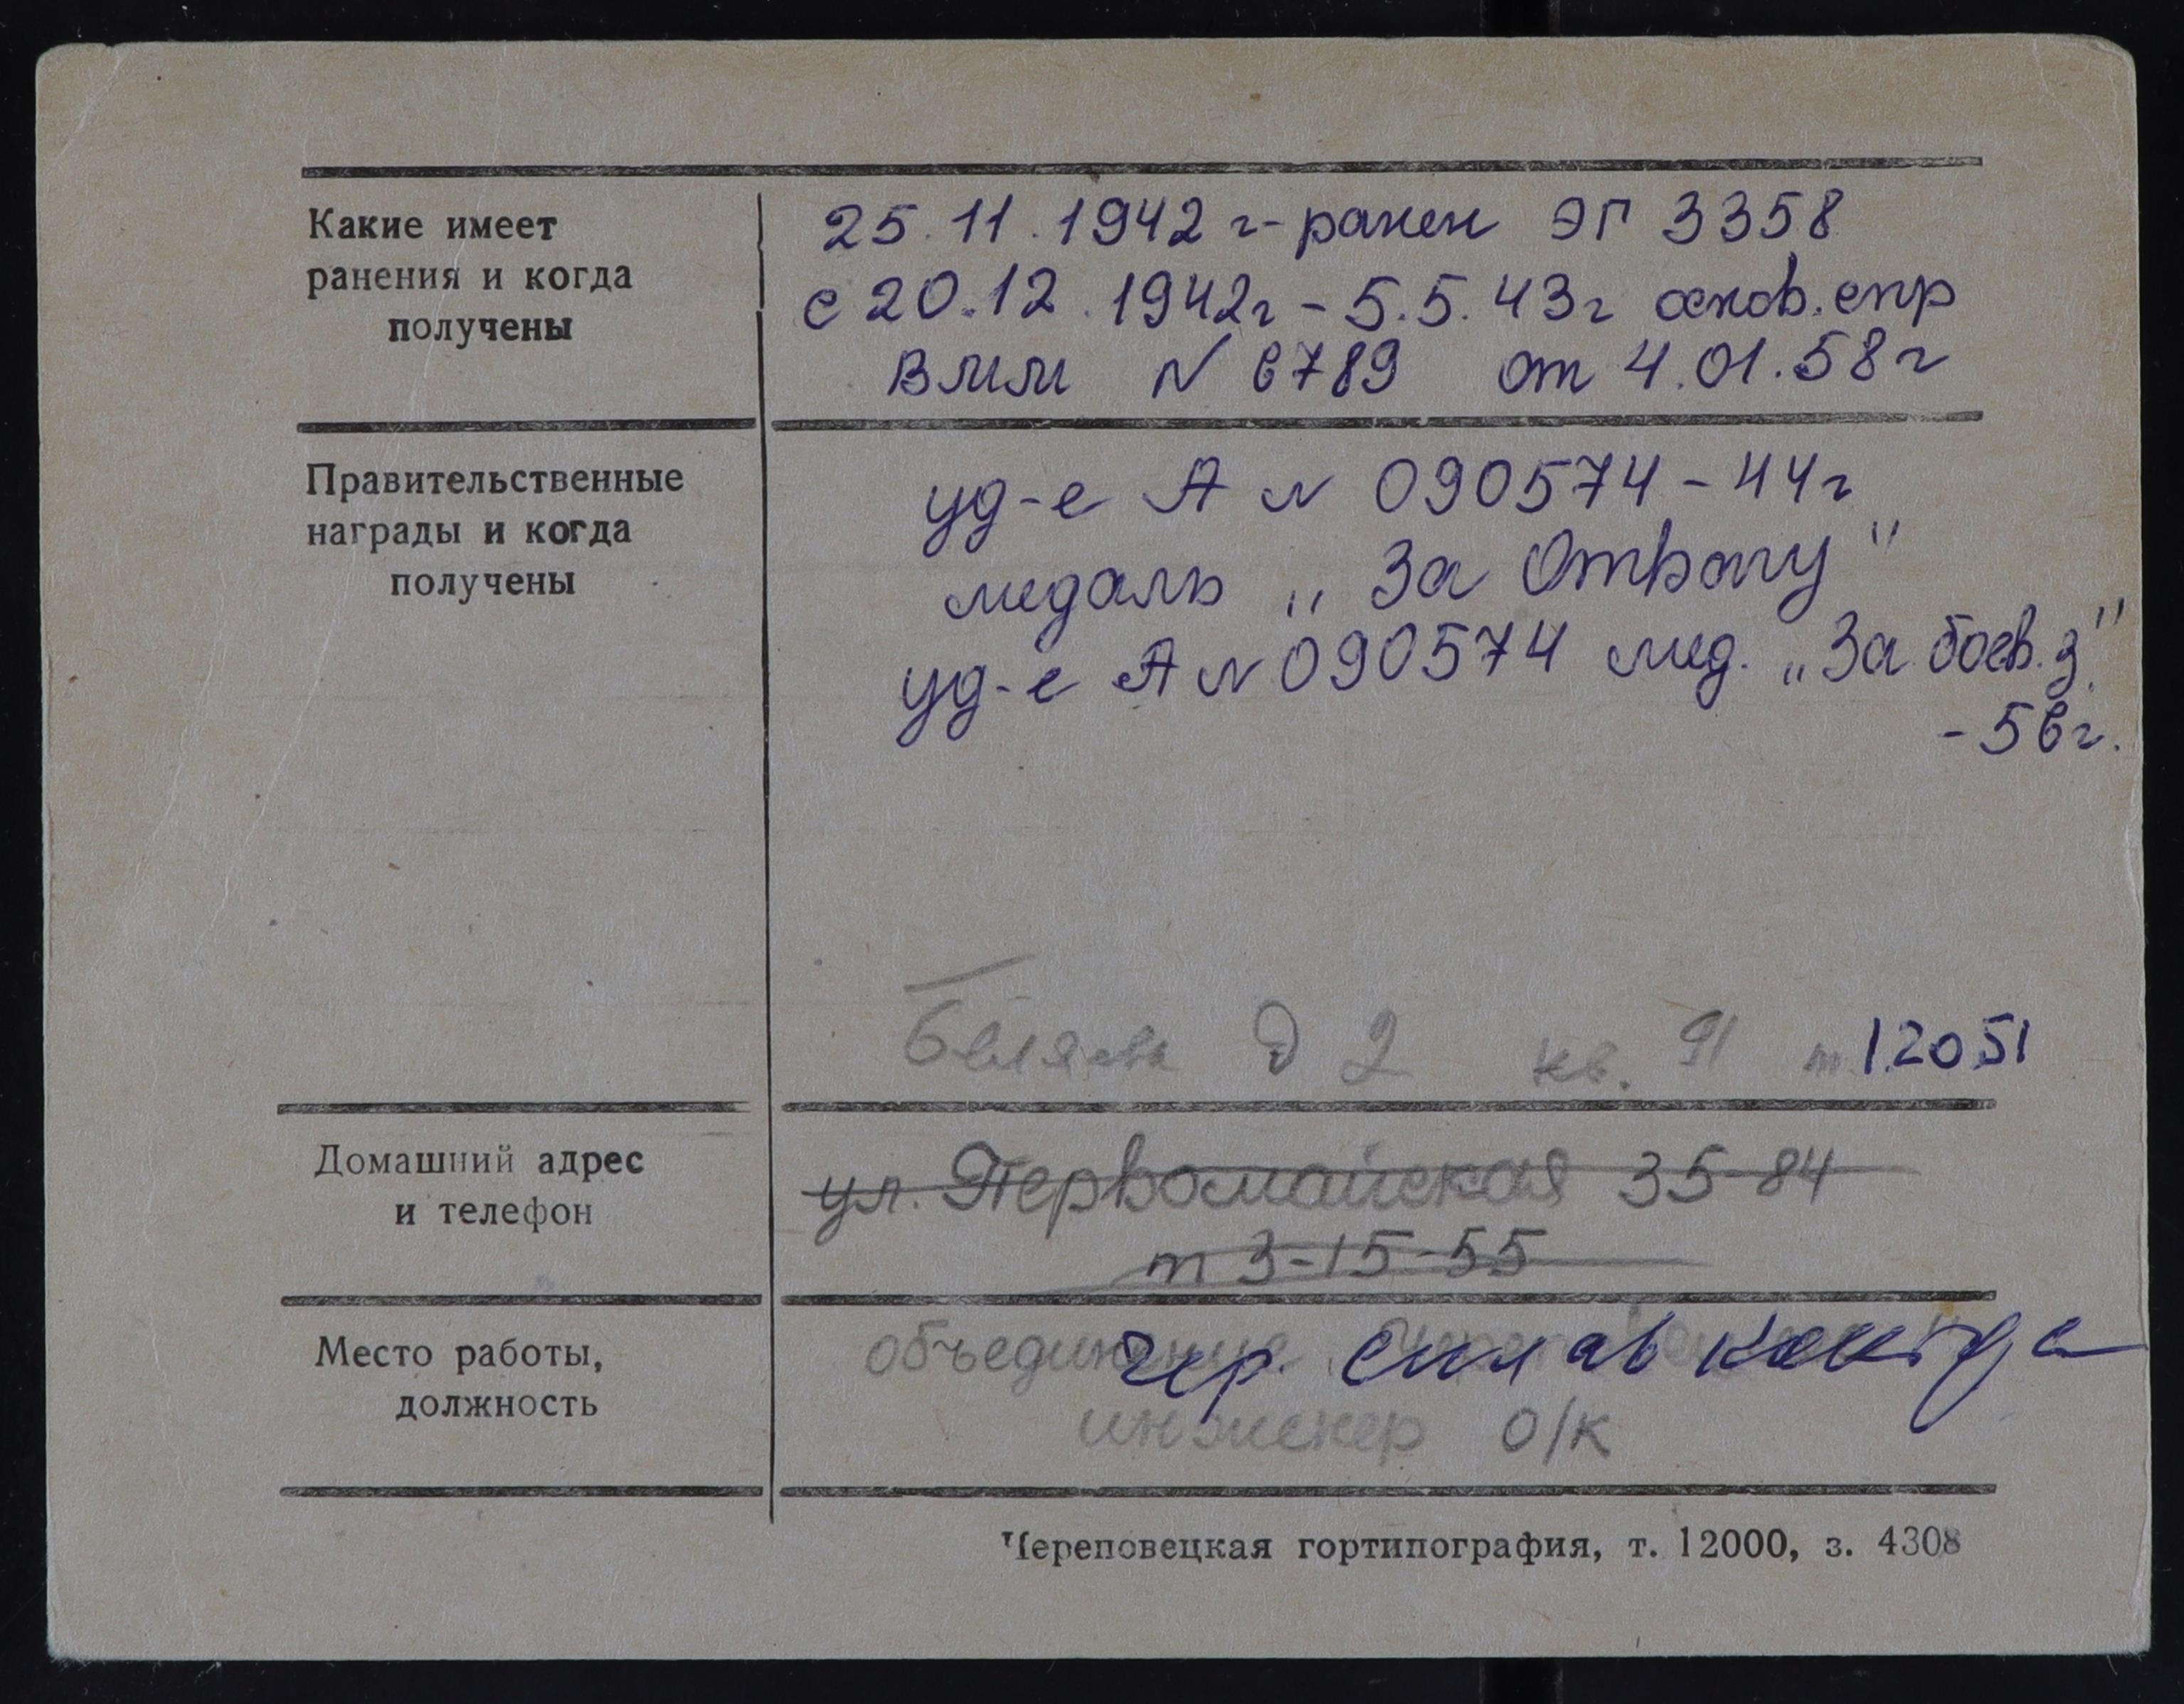 Какие имеет
ранения и когда
получены
25.11.1942 г- ранен ЭГ 3358
с 20.12.1942г - 5.5.43г основ. спр
ВММ N 6789 от 4.01.58г
Правительственные
награды и когда
получены
уд-е А N 090574 - 44г
медаль „За Отвагу"
уд-е А N 090574 мед. „За боев. з."
- 56г.
д 2 кв. 91 т. 12051
Домашний адрес
и телефон
ул. Первомайская 35-84
т 3-15-55
Место работы,
должность
объединение
чер. сплав
инженер о/к
Череповецкая гортипография, т. 12000, з. 4308